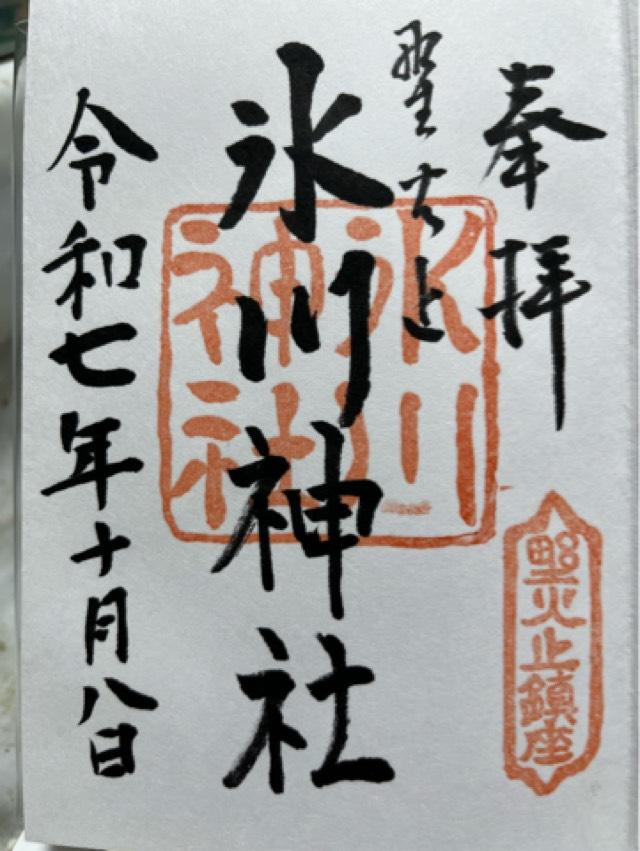 奉拝
野火止
氷川神社
令和七年十月八日
氷川
神社
野火止鎮座